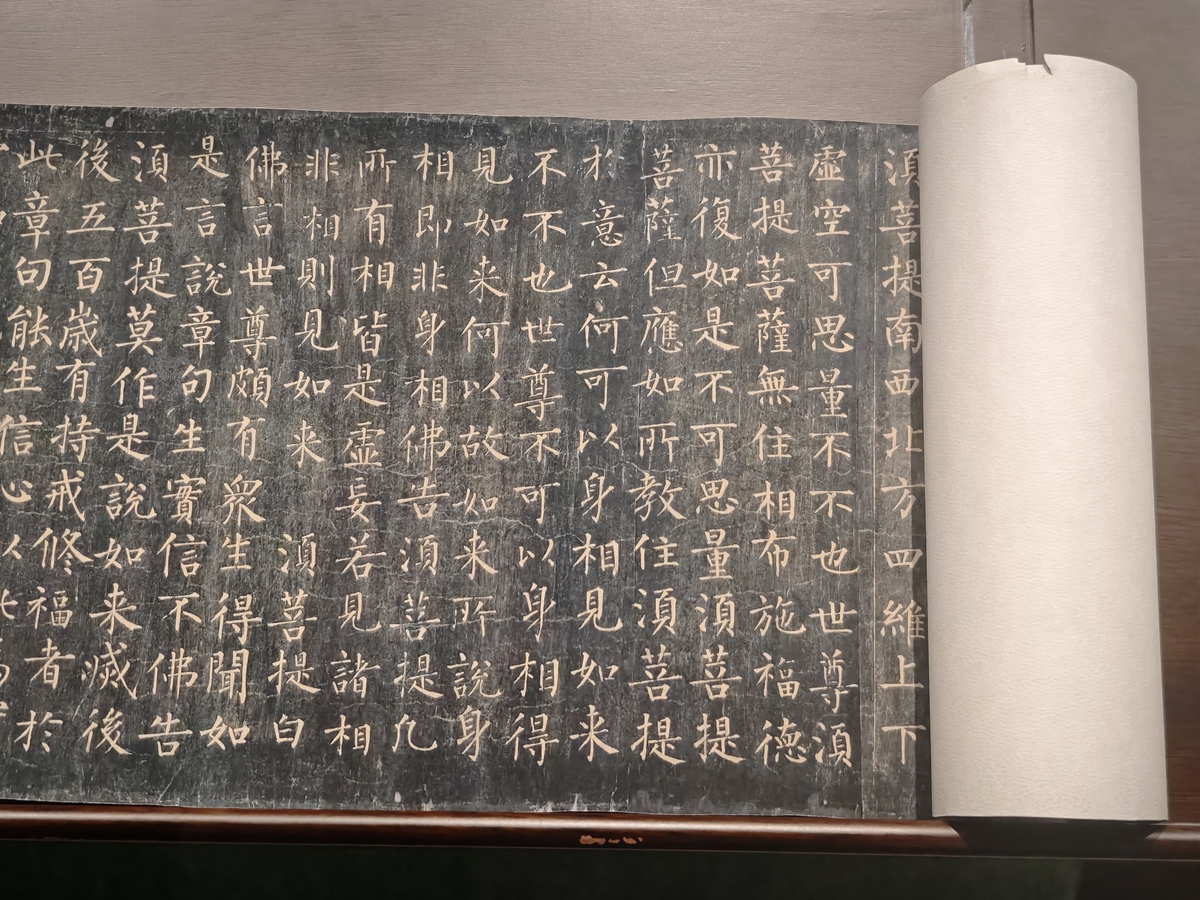 須菩提南西北方四維上下
虛空可思量不不也世尊須
菩提菩薩無住相布施福德
亦復如是不可思量須菩提
菩薩但應如所教住須菩提
於意云何可以身相見如来
不不也世尊不可以身相得
見如来何以故如来所說身
相即非身相佛告須菩提凡
所有相皆是虛妄若見諸相
非相則見如来 須菩提白
佛言世尊頗有衆生得聞如
是言說章句生實信不佛告
須菩提莫作是說如来滅後
後五百歲有持戒修福者於
此章句能生信心以